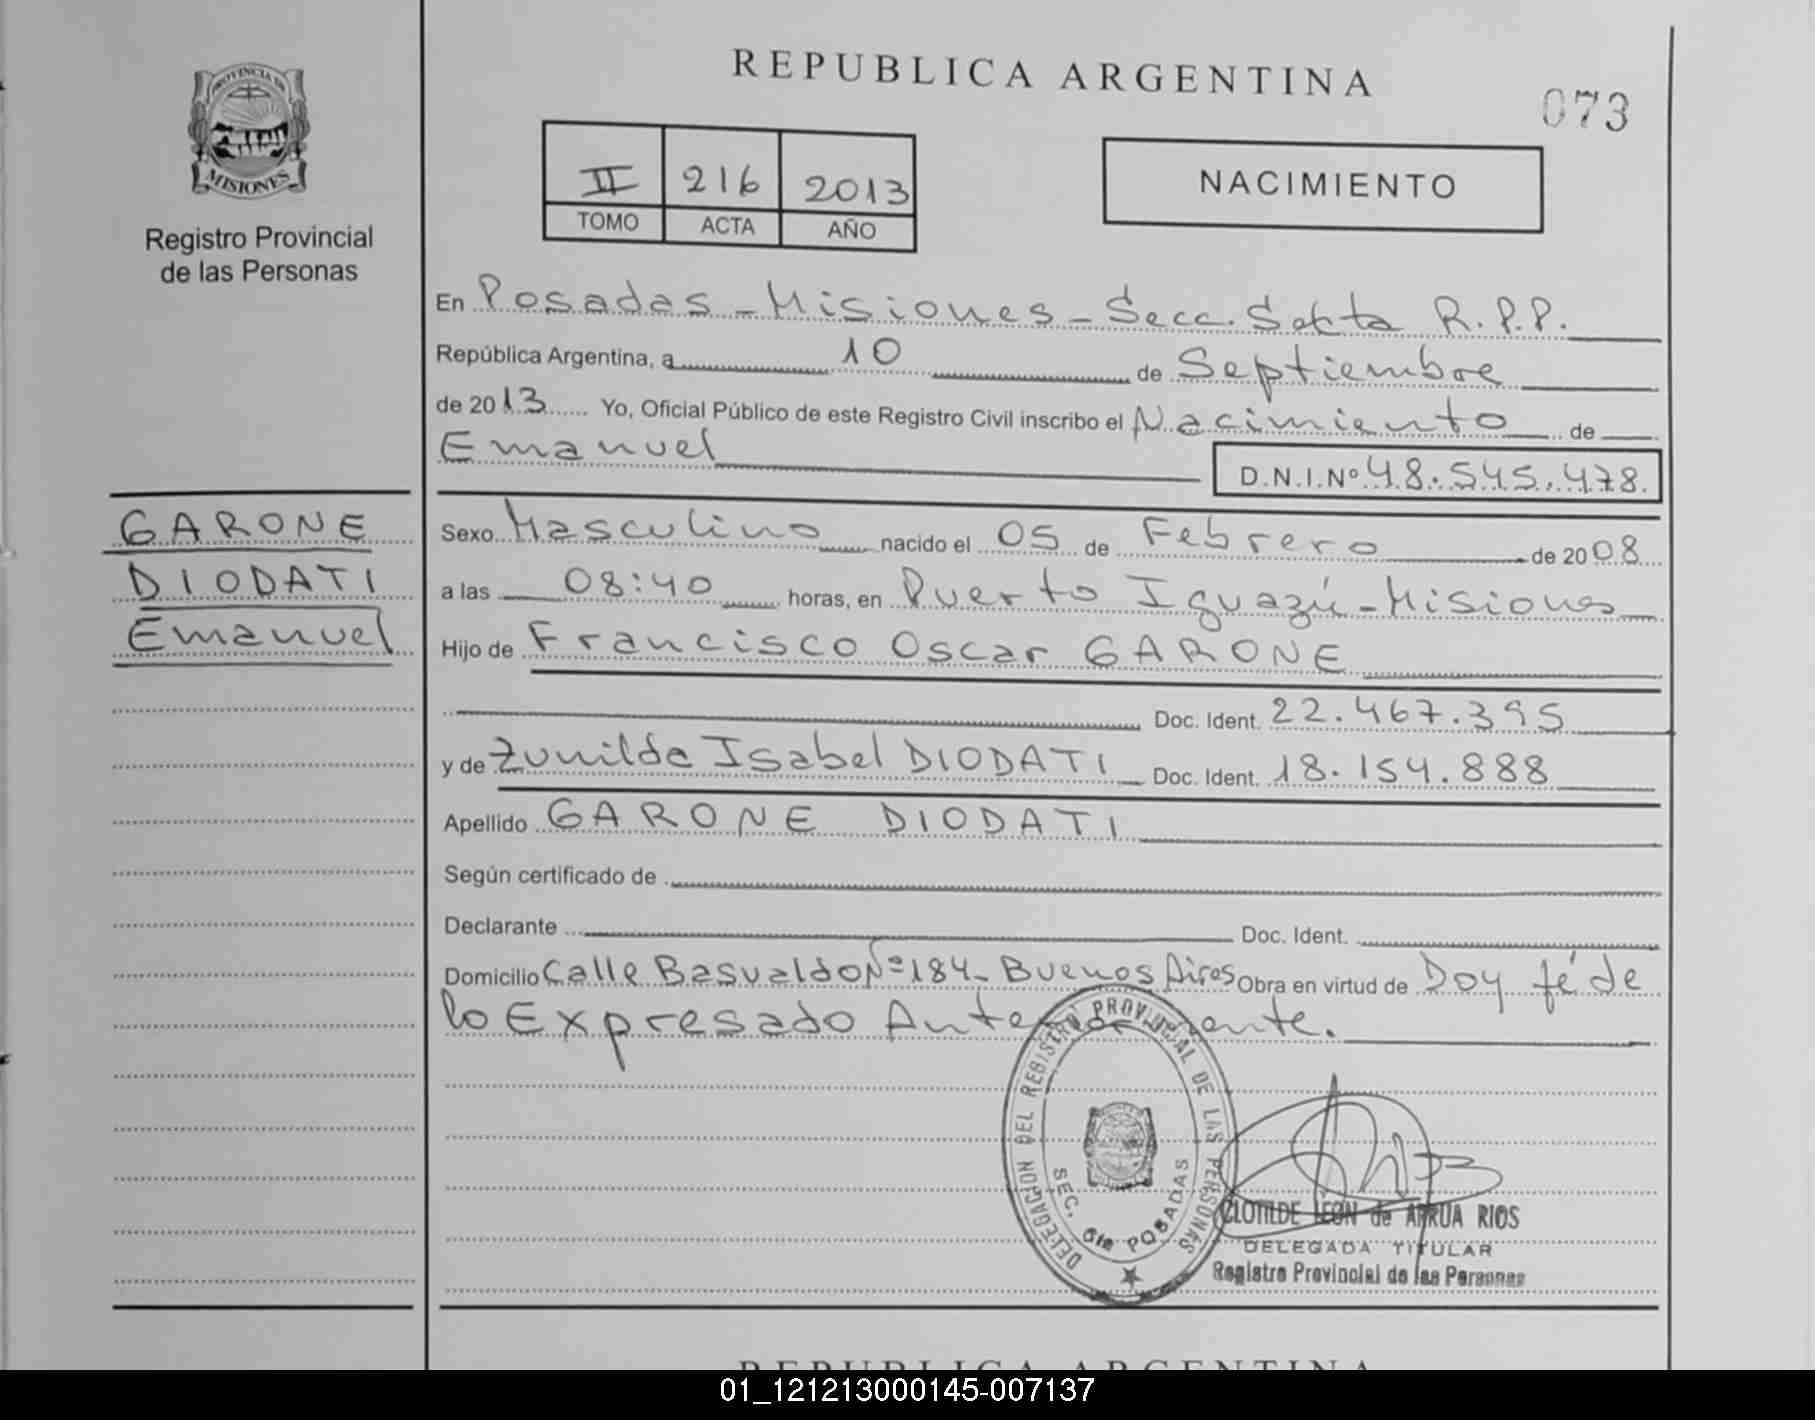 REPUBLICA ARGENTINA
073
PROVINCIA DE
MISIONES
Registro Provincial
de las Personas
II 216 2013
TOMO ACTA AÑO
NACIMIENTO
En Posadas - Misiones - Secc. Sexta R.P.P.
República Argentina, a 10 de Septiembre
de 2013 Yo, Oficial Público de este Registro Civil inscribo el Nacimiento de
Emanuel D.N.I.Nº 48.545.478.
GARONE
DIODATI
Emanuel
Sexo Masculino nacido el 05 de Febrero de 2008
a las 08:40 horas, en Puerto Iguazú - Misiones
Hijo de Francisco Oscar GARONE
Doc. Ident. 22.467.395
y de Zunilda Isabel DIODATI Doc. Ident. 18.154.888
Apellido GARONE DIODATI
Según certificado de
Declarante Doc. Ident.
Domicilio Calle Basualdo Nº 184 - Buenos Aires Obra en virtud de Doy fé de
lo Expresado Anteriormente.
DELEGACION DEL REGISTRO PROVINCIAL DE LAS PERSONAS
SEC. 6ta POSADAS
CLOTILDE LEON de ARRUA RIOS
DELEGADA TITULAR
Registro Provincial de las Personas
REPUBLICA ARGENTINA
01_121213000145-007137